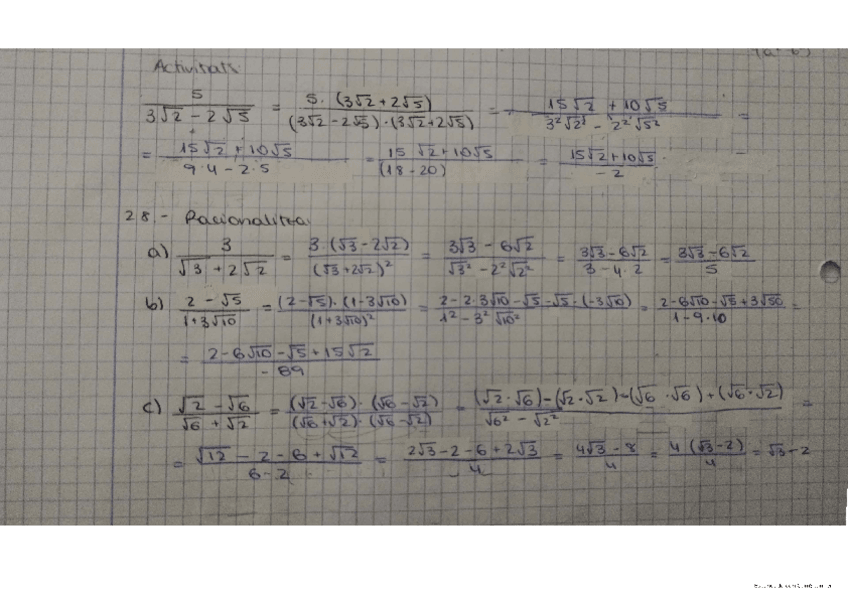 Activitats
5 / (3√2 - 2√5) = 5 · (3√2 + 2√5) / (3√2 - 2√5) · (3√2 + 2√5) = (15√2 + 10√5) / (3²√2² - 2²√5²) =
= (15√2 + 10√5) / (9·4 - 2·5) = (15√2 + 10√5) / (18 - 20) = (15√2 + 10√5) / -2
28.- Racionalitza
a) 3 / (√3 + 2√2) = 3 · (√3 - 2√2) / (√3 + 2√2)² = (3√3 - 6√2) / (√3² - 2²√2²) = (3√3 - 6√2) / (3 - 4·2) = (3√3 - 6√2) / 5
b) (2 - √5) / (1 + 3√10) = (2 - √5) · (1 - 3√10) / (1 + 3√10)² = (2 - 2·3√10 - √5 - √5 · (-3√10)) / (1² - 3²√10²) = (2 - 6√10 - √5 + 3√50) / (1 - 9·10) =
= (2 - 6√10 - √5 + 15√2) / -89
c) (√2 - √6) / (√6 + √2) = (√2 - √6) · (√6 - √2) / (√6 + √2) · (√6 - √2) = (√2 · √6) - (√2 · √2) - (√6 · √6) + (√6 · √2) / (√6² - √2²) =
= (√12 - 2 - 6 + √12) / (6 - 2) = (2√3 - 2 - 6 + 2√3) / 4 = (4√3 - 8) / 4 = 4 (√3 - 2) / 4 = √3 - 2